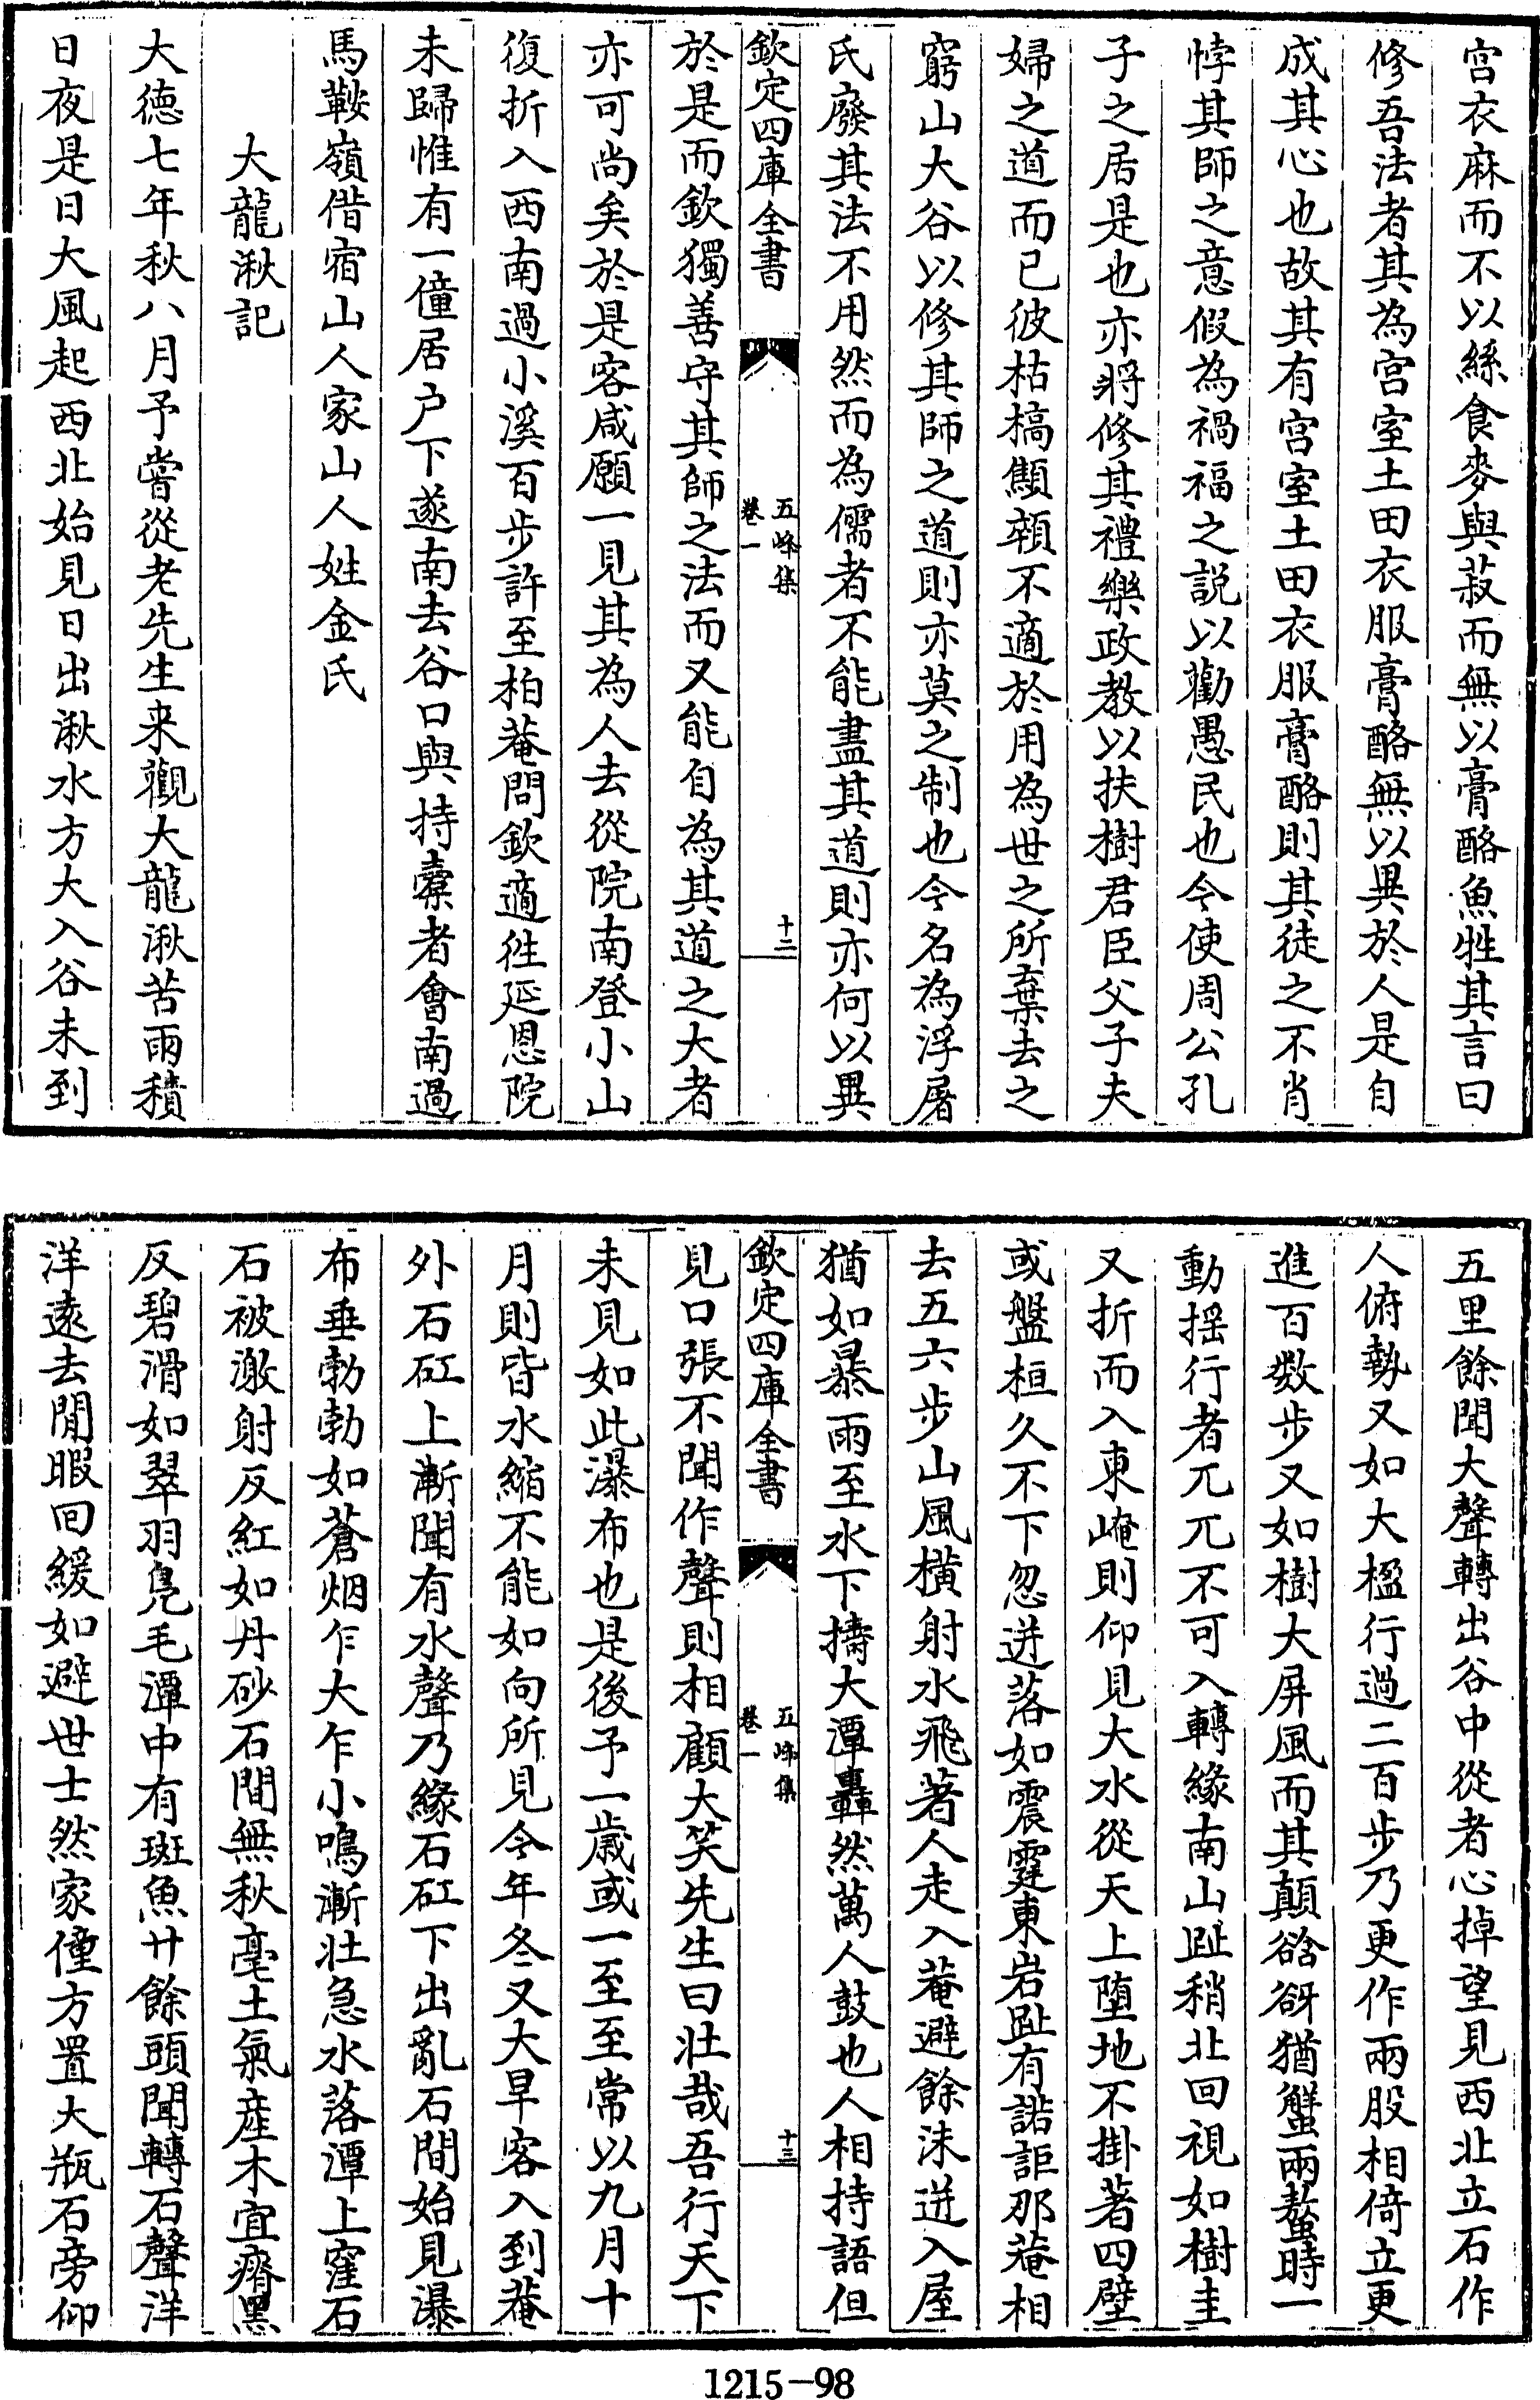 宫衣麻而不以絲食麥與菽而無以膏酪魚牲其言曰
修吾法者其為宫室土田衣服膏酪無以異於人是自
成其心也故其有宫室土田衣服膏酪則其徒之不肖
悖其師之意假為禍福之説以勸愚民也今使周公孔
子之居是也亦將修其禮樂政教以扶樹君臣父子夫
婦之道而已彼枯槁顦顇不適於用為世之所棄去之
窮山大谷以修其師之道則亦莫之制也今名為浮屠
氏廢其法不用然而為儒者不能盡其道則亦何以異
欽定四庫全書
五峰集
卷一
十二
於是而欽獨善守其師之法而又能自為其道之大者
亦可尚矣於是客咸願一見其為人去從院南登小山
復折入西南過小溪百步許至柏菴問欽適徃延恩院
未歸惟有一僮居户下遂南去谷口與持槖者會南過
馬鞍嶺借宿山人家山人姓金氏
大龍湫記
大徳七年秋八月予嘗從老先生来觀大龍湫苦雨積
日夜是日大風起西北始見日出湫水方大入谷未到
五里餘聞大聲轉出谷中從者心掉望見西北立石作
人俯勢又如大楹行過二百步乃更作兩股相倚立更
進百數步又如樹大屏風而其顛谽谺猶蟹兩螯時一
動揺行者兀兀不可入轉緣南山趾稍北回視如樹圭
又折而入東崦則仰見大水從天上墮地不掛著四壁
或盤桓久不下忽迸落如震霆東岩趾有諾詎那菴相
去五六步山風横射水飛著人走入菴避餘沫迸入屋
猶如暴雨至水下擣大潭轟然萬人鼓也人相持語但
欽定四庫全書
五峰集
卷一
十三
見口張不聞作聲則相顧大笑先生曰壯哉吾行天下
未見如此瀑布也是後予一歳或一至至常以九月十
月則皆水縮不能如向所見今年冬又大旱客入到菴
外石矼上漸聞有水聲乃緣石矼下出亂石間始見瀑
布垂勃勃如蒼烟乍大乍小鳴漸壯急水落潭上窪石
石被激射反紅如丹砂石間無秋毫土氣産木宜瘠黑
反碧滑如翠羽凫毛潭中有斑魚廿餘頭聞轉石聲洋
洋遠去閒暇回緩如避世士然家僮方置大瓶石旁仰
1215-98